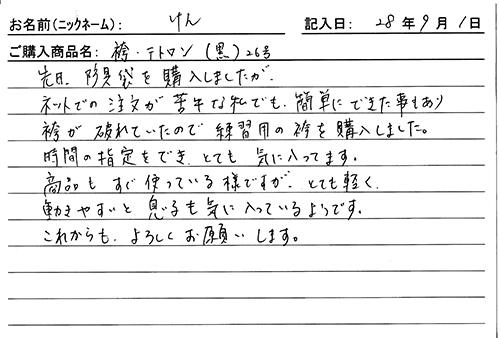 お名前(ニックネーム): けん 記入日: 28年9月1日
ご購入商品名: 袴・テトロン(黒)26号
先日、防具袋を購入しましたが、
ネットでの注文が苦手な私でも、簡単にできた事もあり
袴が破れていたので練習用の袴を購入しました。
時間の指定をでき、とても気に入ってます。
商品もすぐ使っている様ですが、とても軽く、
動きやすいと息子も気に入っているようです。
これからも、よろしくお願いします。